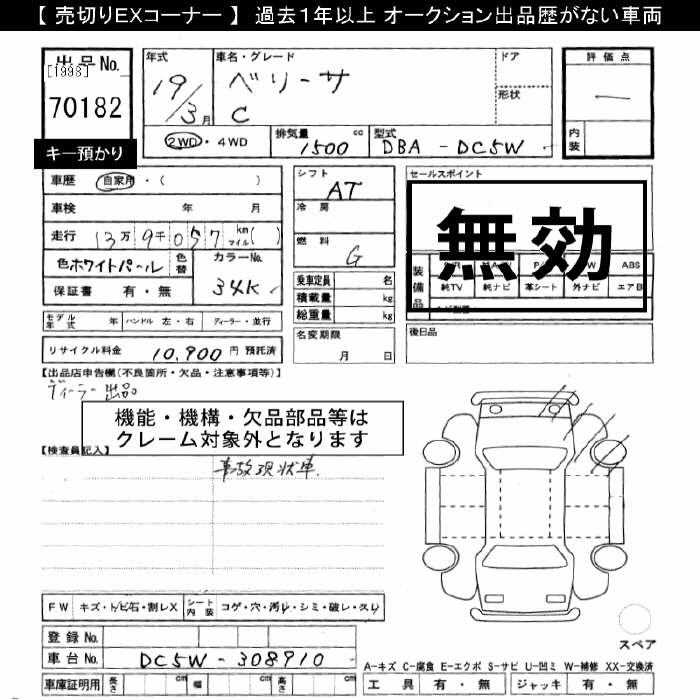 【 売切りEXコーナー 】 過去1年以上 オークション出品歴がない車両
出品No.
[1998]
70182
キー預かり
年式
19/3月
車名・グレード
ベリーサ
C
ドア
形状
2WD・4WD
排気量 1500 cc
型式 DBA - DC5W
評価点
一
内装
車歴 自家用・( )
車検 年 月
走行 13万9千057 km マイル( )
色 ホワイトパール 色替
カラーNo. 34K
保証書 有・無
シフト AT
冷房
燃料 G
乗車定員 名
積載量 kg
総重量 kg
セールスポイント
無効
装備品
ABS
純TV 純ナビ 革シート 外ナビ エアB
モデル年式 年 ハンドル 左・右 ディーラー・並行
リサイクル料金 10,900 円 預託済
名変期限
月 日
後日品
【出品店申告欄(不良箇所・欠品・注意事項等)】
ディーラー出品。
機能・機構・欠品部品等は
クレーム対象外となります
【検査員記入】
事故現状車.
FW キズ・トビ石・割レX シート内装 コゲ・穴・汚レ・シミ・破レ・スレ
登録No.
車台No. DC5W - 308910
車庫証明用 長さ cm 幅 cm 高さ cm
スペア
A-キズ C-腐食 E-エクボ S-サビ U-凹ミ W-補修 XX-交換済
工具 有・無 ジャッキ 有・無